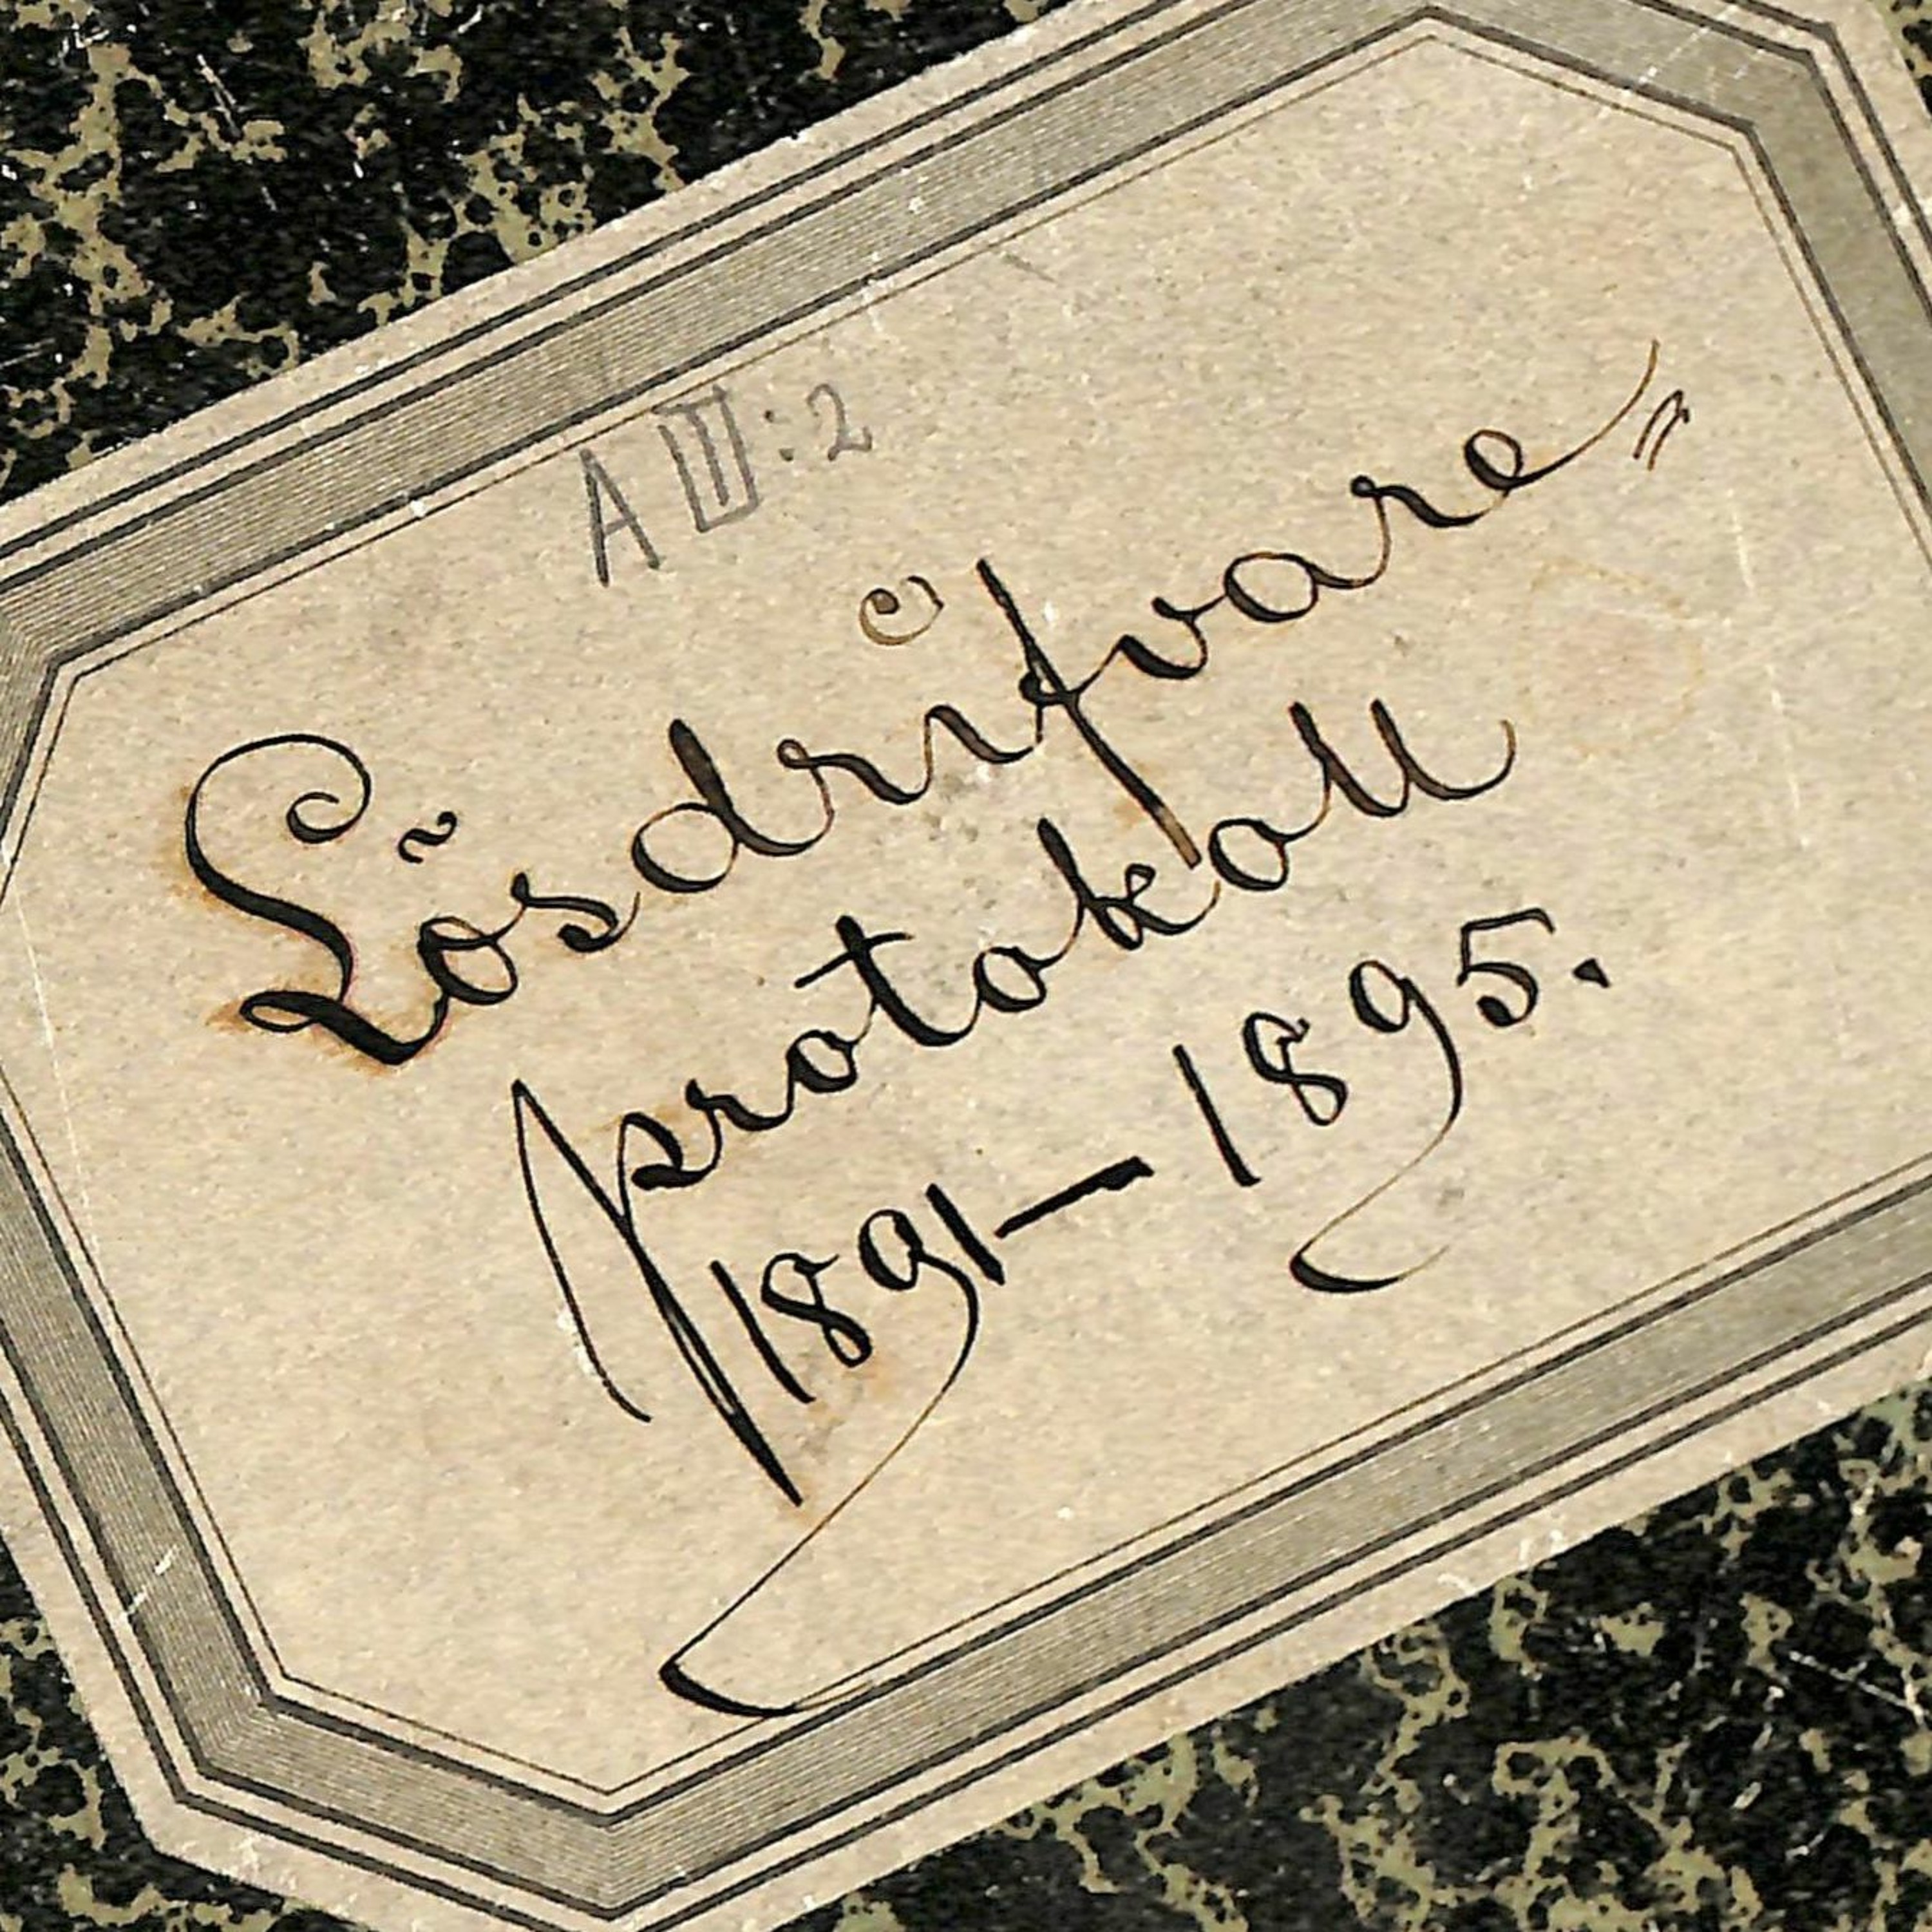 A III:2
Lösdrifvare„
protokoll
1891–1895.